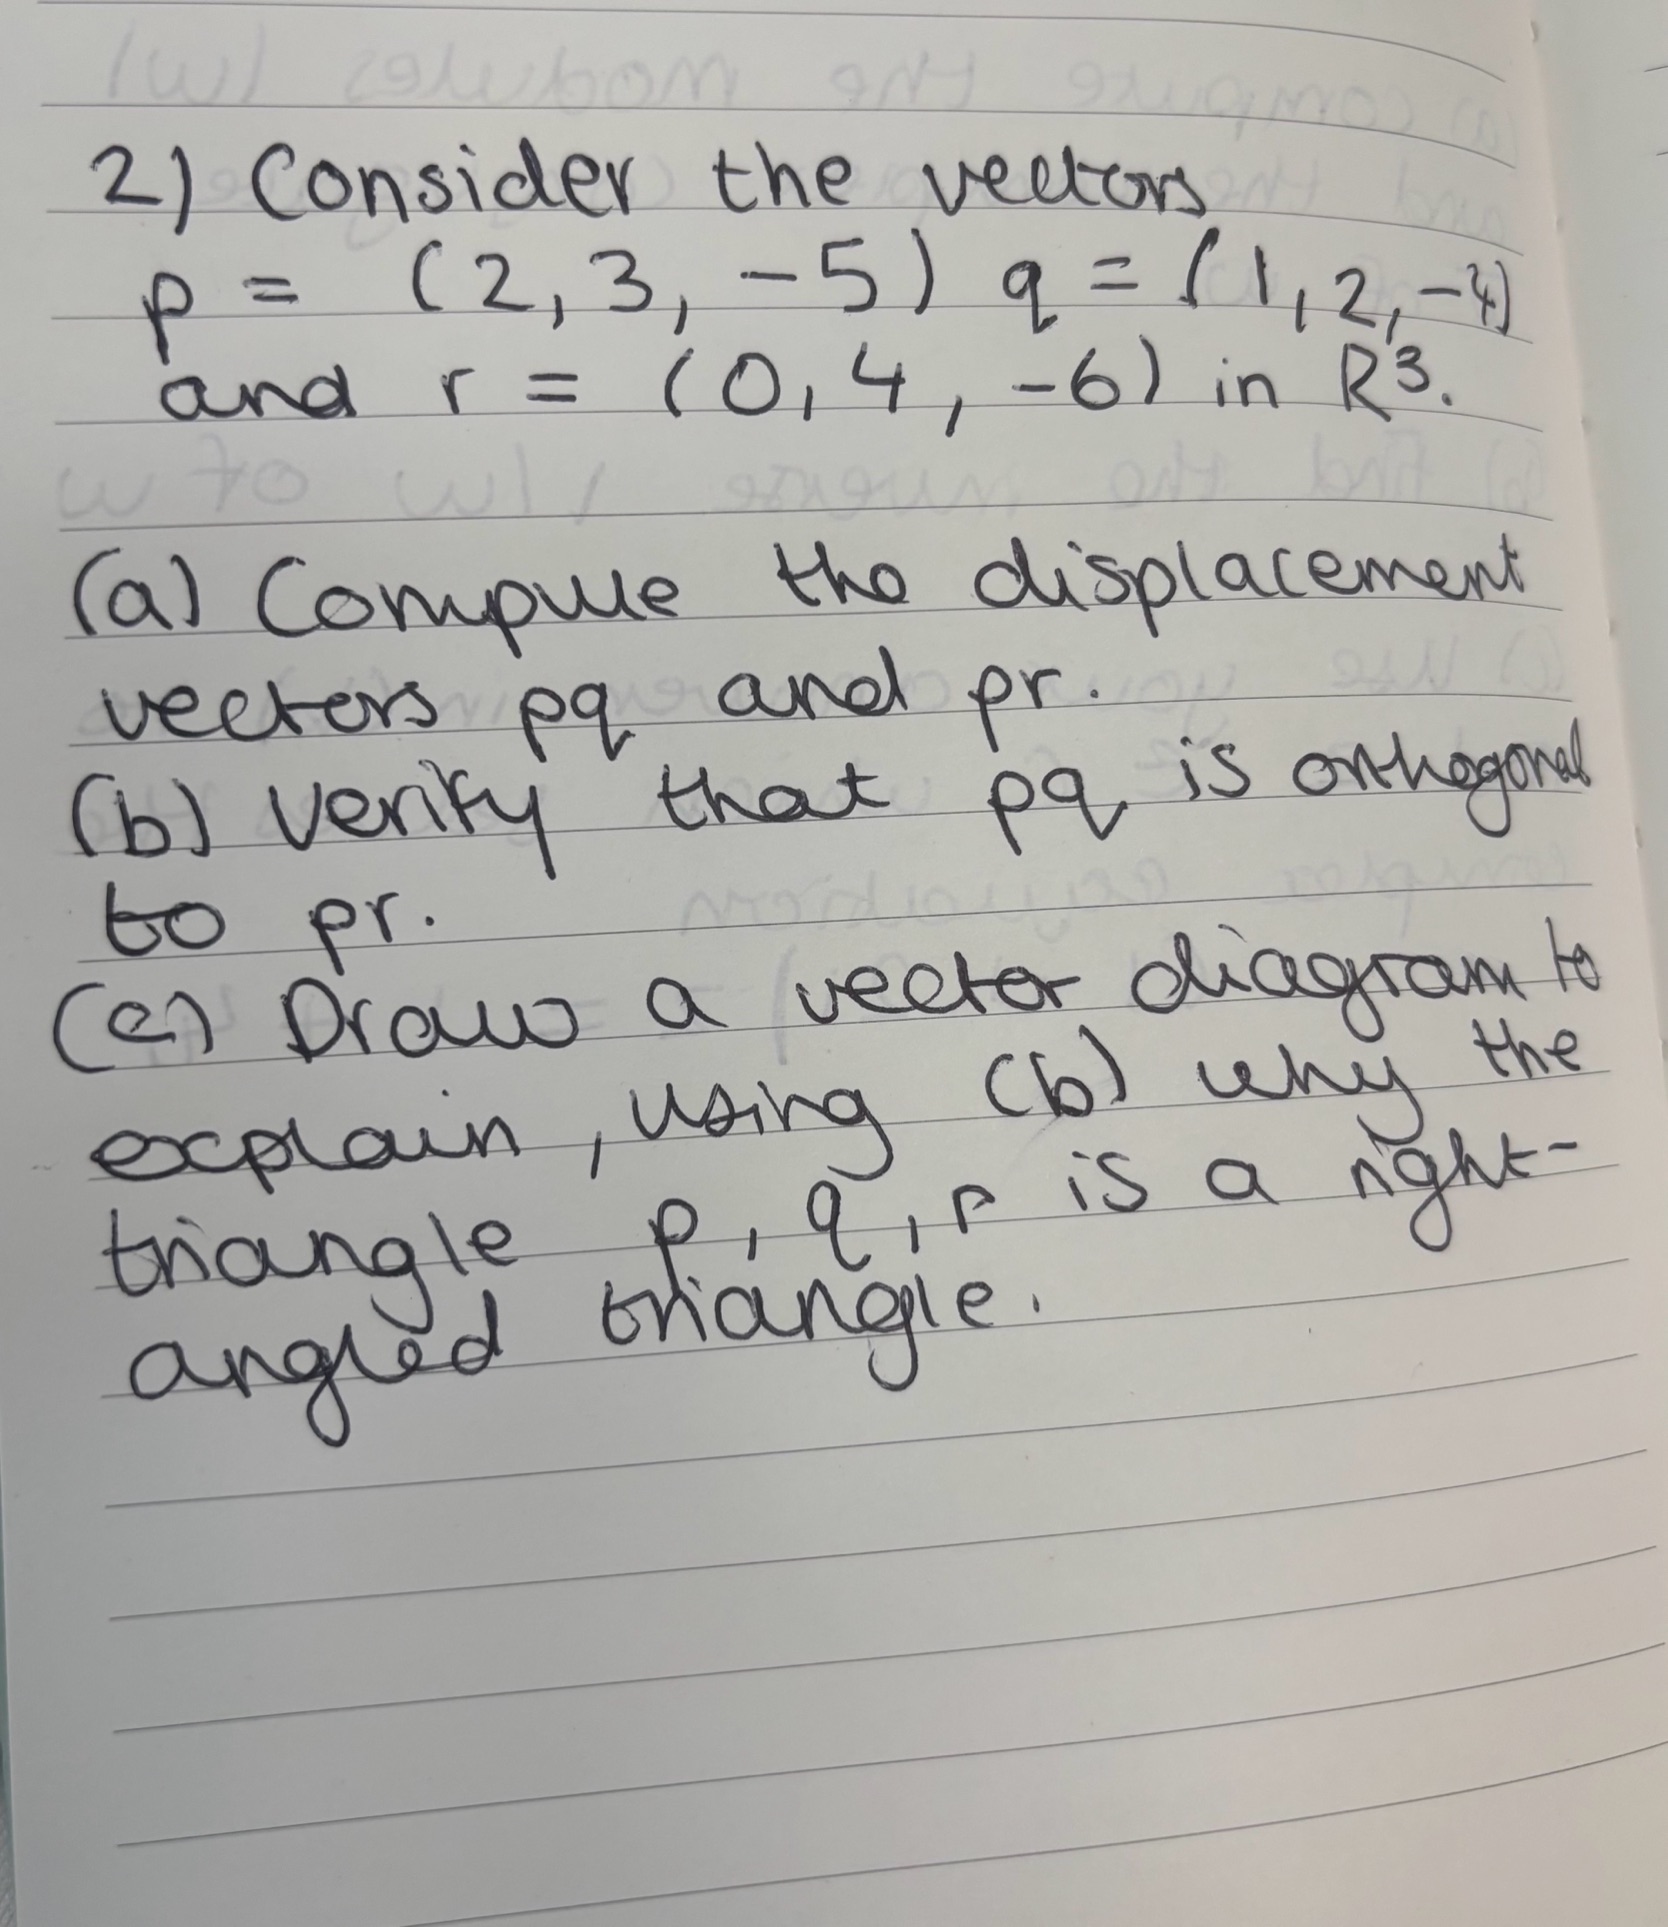 2) Consider the vectors
p = (2, 3, -5) q = (1, 2, -4)
and r = (0, 4, -6) in R³.
(a) Compute the displacement
vectors pq and pr.
(b) Verify that pq is orthogonal
to pr.
(c) Draw a vector diagram to
explain, using (b) why the
triangle p, q, r is a right-
angled triangle.